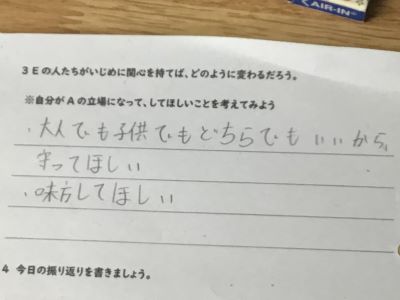 AIR-IN
3 Eの人たちがいじめに関心を持てば、どのように変わるだろう。
※自分がAの立場になって、してほしいことを考えてみよう
・大人でも子供でもどちらでもいいから、
守ってほしい
・味方してほしい
4 今日の振り返りを書きましょう。